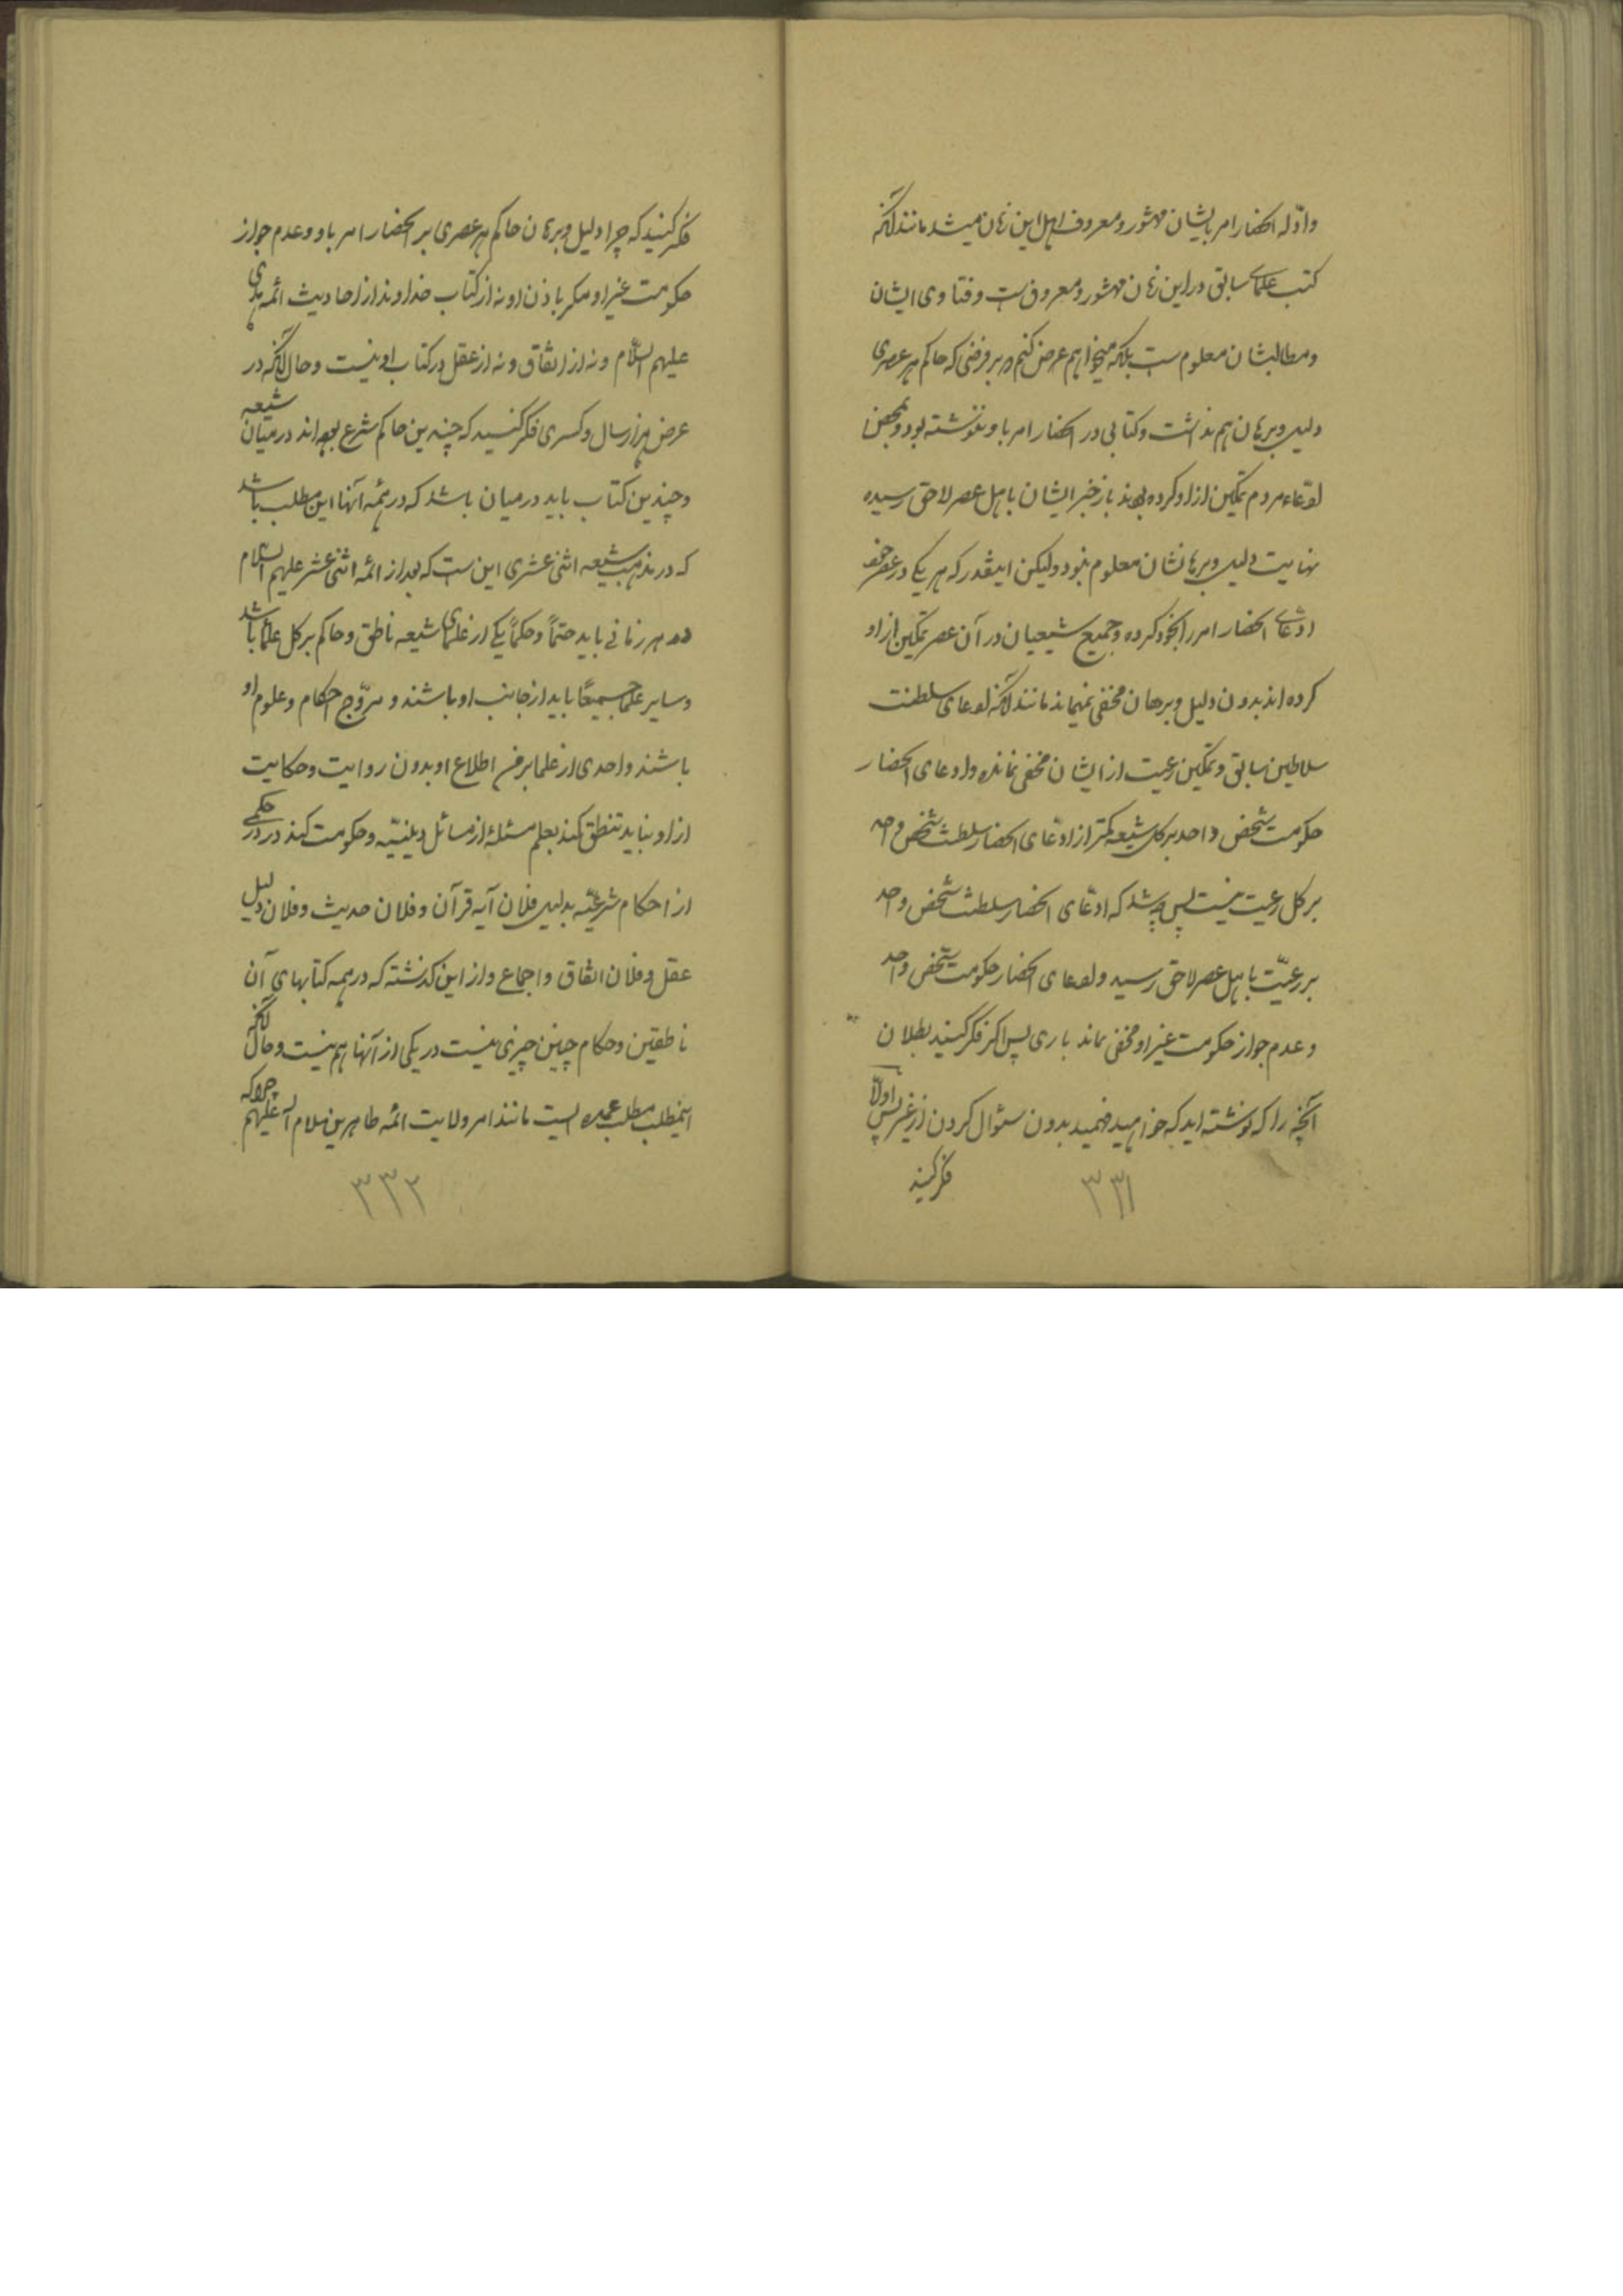 وادّله انحصار امر بایشان مشهور و معروف اهل این زمان میشد مانند آنکه
کتب علمای سابق در این زمان مشهور و معروف است و فتاوی ایشان
و مطالبشان معلوم است بلکه میخواهم عرض کنم که بر فرضی که حاکم هر عصری
دلیل و برهان هم نداشت و کتابی در انحصار امر باو ننوشته بود و بمحض
ادّعاء مردم تمکین از او کرده بودند باز خبر ایشان باهل عصر لاحق رسیده
نهایت دلیل و برهانشان معلوم نبود ولیکن اینقدر که هر یکی در عصر خود
ادعای انحصار امر را بخود کرده و جمیع شیعیان در آن عصر تمکین از او
کرده اند بدون دلیل و برهان مخفی نمیماند مانند آنکه ادعای سلطنت
سلاطین سابق و تمکین رعیت از ایشان مخفی نمانده و ادعای انحصار
حکومت شخص واحد بر کل شیعه کمتر از ادّعای انحصار سلطنت شخص واحد
بر کل رعیت نیست پس چه شد که ادّعای انحصار سلطنت شخص واحد
بر رعیّت باهل عصر لاحق رسید و ادعای انحصار حکومت شخص واحد
و عدم جواز حکومت غیر او مخفی ماند باری پس اگر فکر کنید بطلان
آنچه را که نوشته اید که خواهید فهمید بدون سئوال کردن از غیر پس اولاً
فکر کنید
۳۳۱
فکر کنید که چرا دلیل و برهان حاکم هر عصری بر انحصار امر باو و عدم جواز
حکومت غیر او مگر باذن او نه از کتاب خدا و نه از احادیث ائمه هدی
علیهم السلام و نه از اتفاق و نه از عقل در کتاب او نیست و حال آنکه در
عرض هزار سال و کسری فکر کنید که چندین حاکم شرع بوده اند در میان شیعه
و چندین کتاب باید در میان باشد که در همه آنها این مطلب باشد
که در مذهب شیعه اثنی عشری این است که بعد از ائمه اثنی عشر علیهم السلام
در هر زمانی باید حتماً و حکماً یکی از علمای شیعه ناطق و حاکم بر کل علما باشد
و سایر علما جمیعاً باید از جانب او باشند و مروّج احکام و علوم او
باشند و احدی از علما بر من اطلاع او بدون روایت و حکایت
از او نباید تنطق کند بعلم مسئله از مسائل دینیّه و حکومت کند در حکمی
از احکام شرعیّه بدلیل فلان آیه قرآن و فلان حدیث و فلان دلیل
عقل و فلان اتفاق و اجماع و از این گذشته که در همه کتابهای آن
ناطقین و حکام چنین چیزی نیست در یکی از آنها هم نیست و حال آنکه
اینمطلب مطلب عمده ایست مانند امر ولایت ائمه طاهرین سلام الله علیهم چرا که
۳۳۲